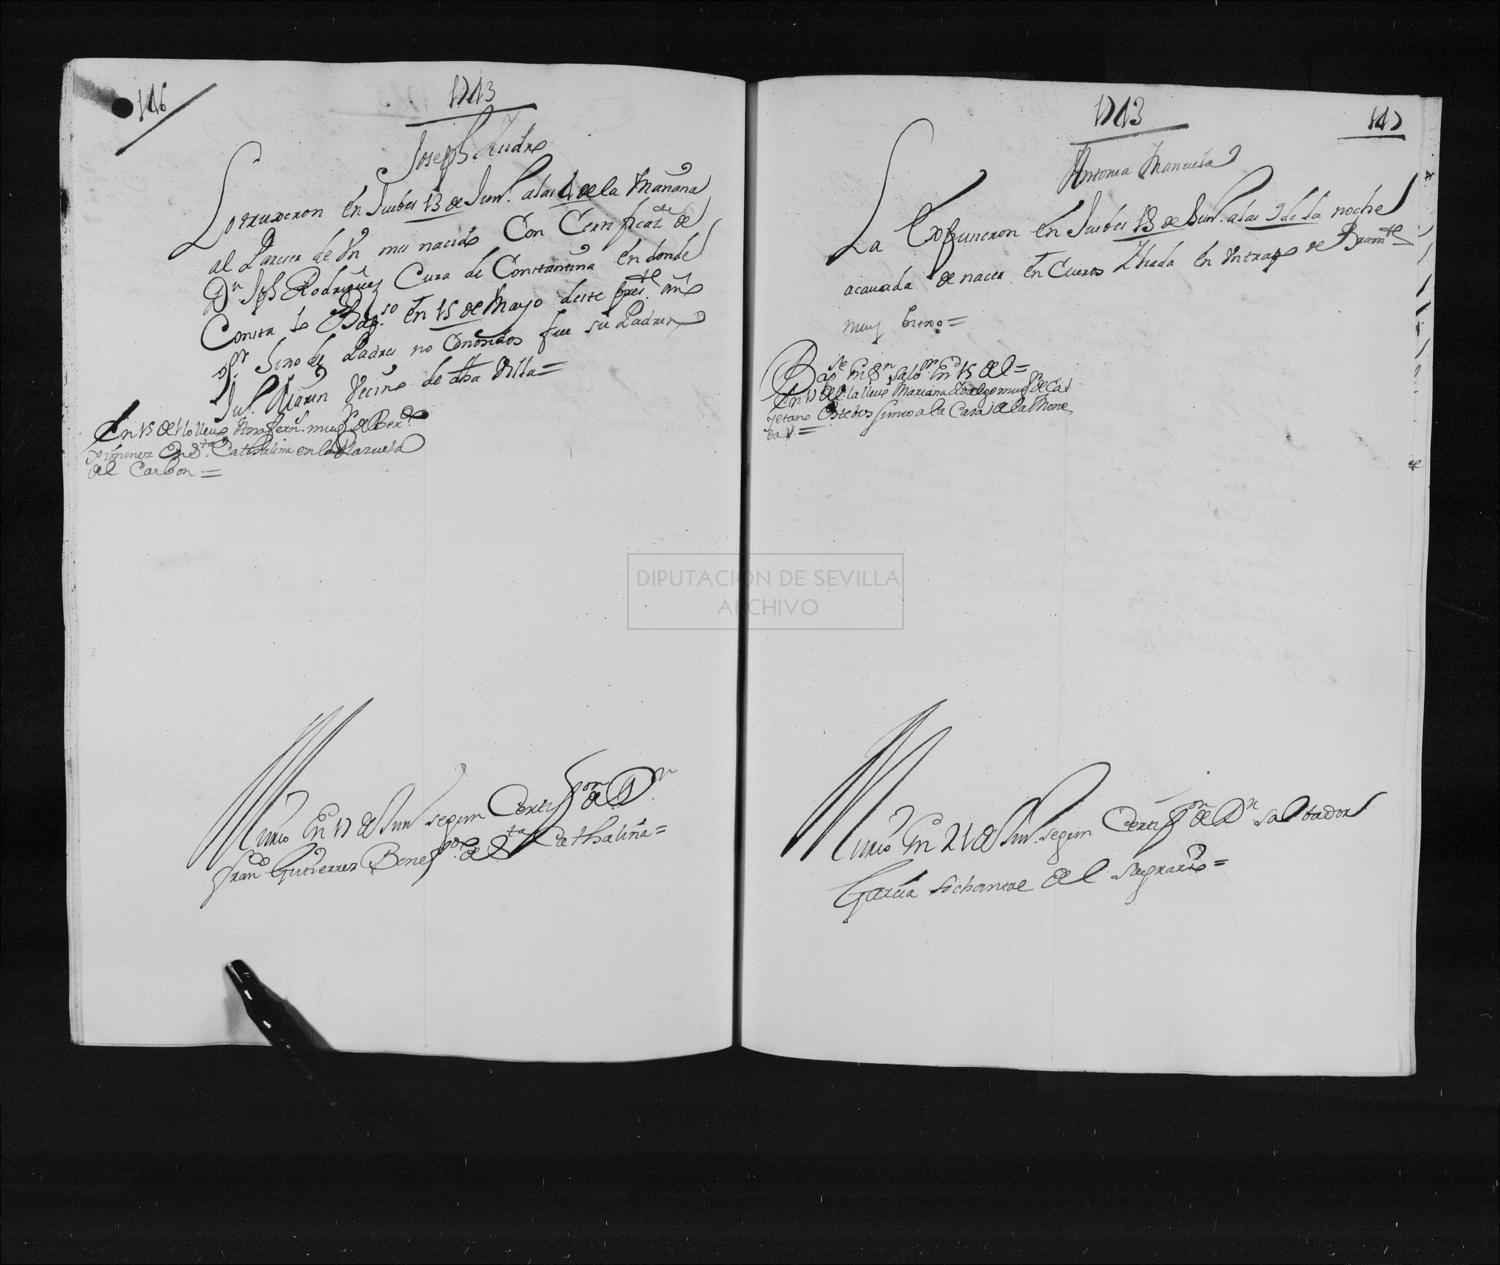 146
1713
Joseph Ysidro
Lo truxeron en Juebes 13 de Jun.º a las 4 de la Mañana
al Parecer de Un mes nacido Con Certificaz.on de
Dn Jph Rodriguez Cura de Constantina en donde
Consta lo Bap.so en 15 de Mayo deste pres.te año
por hixo de Padres no Conosidos fue su Padrino
Ju.º Marin Vecino de dha Villa =
En 15 de 1º lo lleuo Ana fern. muger de Ber.do
Ximenez En S.ta Cathalina en la Plazuela
del Carbon =
Murio En 17 de Jun.º segun Certif.on de Dn
Fran.co Gutierres Benef.do de S.ta Cathalina =
1713
147
Antonia Manuela
La Expusieron en Juebes 13 de Jun.º a las 9 de la noche
acauada de nacer en Cueros liada en Un trapo de Bramte
muy bueno =
Bap.se En S.n Salv.or En 15 del =
En 17 del la lleuo Mariana Hidalgo muger de Ca
yetano Esteban junto a la Casa de la Mone
da =
Murio En 21 de Jun.º segun Certif.on de Dn Salbador
Garcia Sochantre del Sagrario =
DIPUTACIÓN DE SEVILLA
ARCHIVO